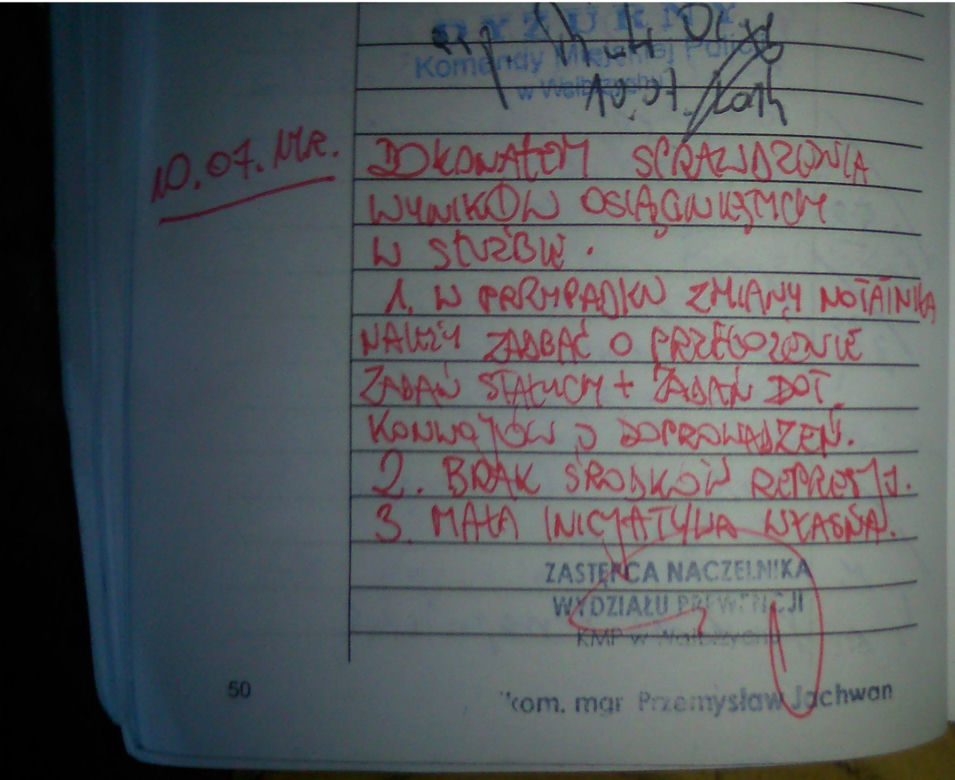 DYŻURNY
Komendy Miejskiej Policji
w Wałbrzychu
10.07.2014
10.07.14R. DOKONAŁEM SPRAWDZENIA
WYNIKÓW OSIĄGNIĘTYCH
W SŁUŻBIE.
1. W PRZYPADKU ZMIANY NOTATNIKA
NALEŻY ZADBAĆ O PRZEŁOŻENIE
ZADAŃ STAŁYCH + ZADAŃ DOT.
KONWOJÓW I DOPROWADZEŃ.
2. BRAK ŚRODKÓW REPRESJI.
3. MAŁA INICJATYWA WŁASNA.
ZASTĘPCA NACZELNIKA
WYDZIAŁU PREWENCJI
KMP w Wałbrzychu
50
kom. mgr Przemysław Jachwan